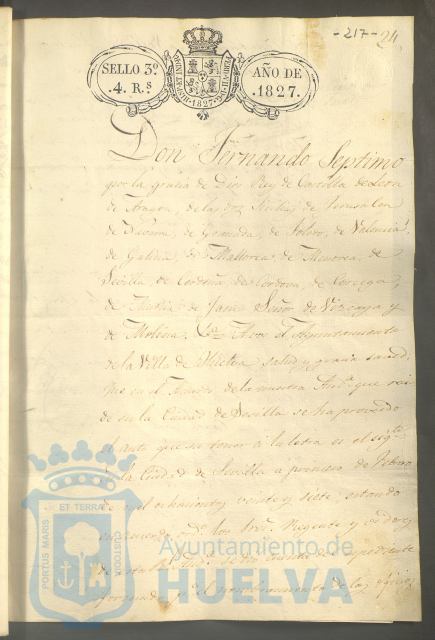 -217- 24
SELLO 3º
4. R.s
AÑO DE
.1827.
Don Fernando Septimo
por la gracia de Dios Rey de Castilla de Leon
de Aragon, de las dos Sicilias, de Jerusalen
de Navarra, de Granada, de Toledo, de Valencia,
de Galicia, de Mallorca, de Menorca, de
Sevilla, de Cerdeña, de Cordova, de Corcega,
de Murcia, de Jaen Señor de Vizcaya y
de Molina, &a. A vos el Ayuntamiento
de la Villa de Huelva salud y gracia sabed:
que en el Acuerdo de la nuestra Auda. que reside
en la Ciudad de Sevilla se ha proveido
el auto que su tenor á la letra es el sigte.
la Ciudad de Sevilla a primero de Febrero
de mil ochocientos veinte y siete, estando
en Acuerdo los Sres. Regente y oidores
de esta Rl. Auda. se dio cuenta del expediente
formado el nombramiento de las
PORTUS MARIS
ET TERRÆ
CUSTODIA
Ayuntamiento de
HUELVA